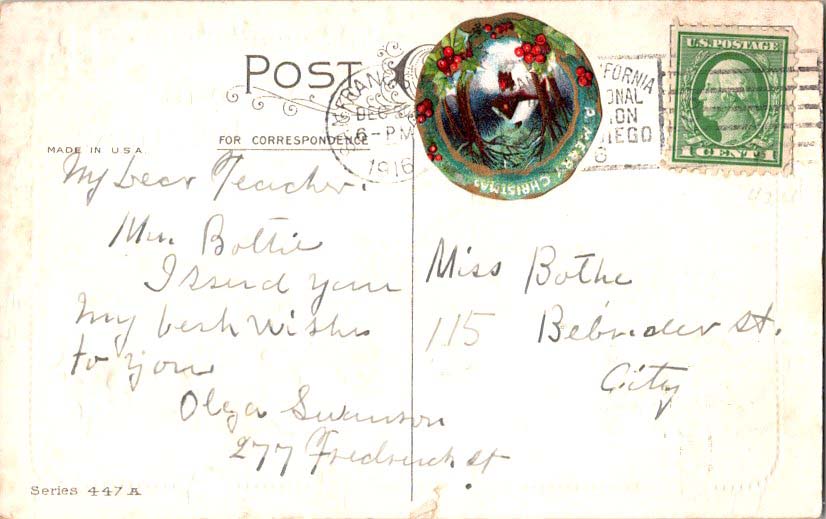 POST C
FOR CORRESPONDENCE
MADE IN U.S.A.
FRAN
DEC
6-PM
1916
A MERRY CHRISTMAS
IFORNIA
ONAL
ION
IEGO
U.S. POSTAGE
1 CENT 1
My Dear Teacher.
Miss Bottie
I send you
My best wishes
to you
Olga Swanson
277 Fredrick st
Miss Bothe
115 st.
City
Series 447 A